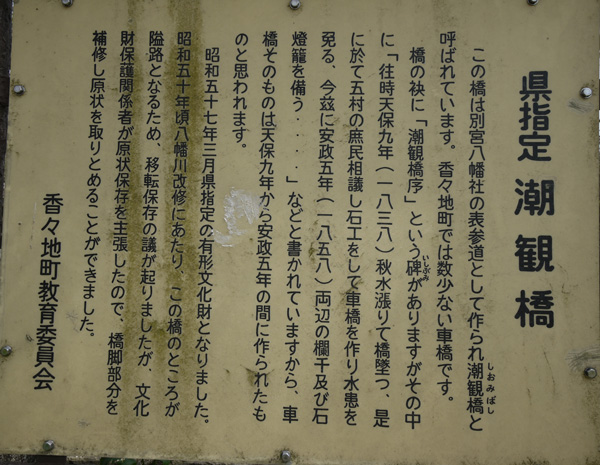 県指定 潮観橋
この橋は別宮八幡社の表参道として作られ潮観橋と
しおみばし
呼ばれています。香々地町では数少ない車橋です。
橋の袂に「潮観橋序」という碑がありますがその中
いしぶみ
に「往時天保九年（一八三八）秋水漲りて橋墜つ、是
に於て五村の庶民相議し石工をして車橋を作り水患を
免る、今玆に安政五年（一八五八）両辺の欄干及び石
燈籠を備う・・・・」などと書かれていますから、車
橋そのものは天保九年から安政五年の間に作られたも
のと思われます。
昭和五十七年三月県指定の有形文化財となりました。
昭和五十年頃八幡川改修にあたり、この橋のところが
隘路となるため、移転保存の議が起りましたが、文化
財保護関係者が原状保存を主張したので、橋脚部分を
補修し原状を取りとめることができました。
香々地町教育委員会